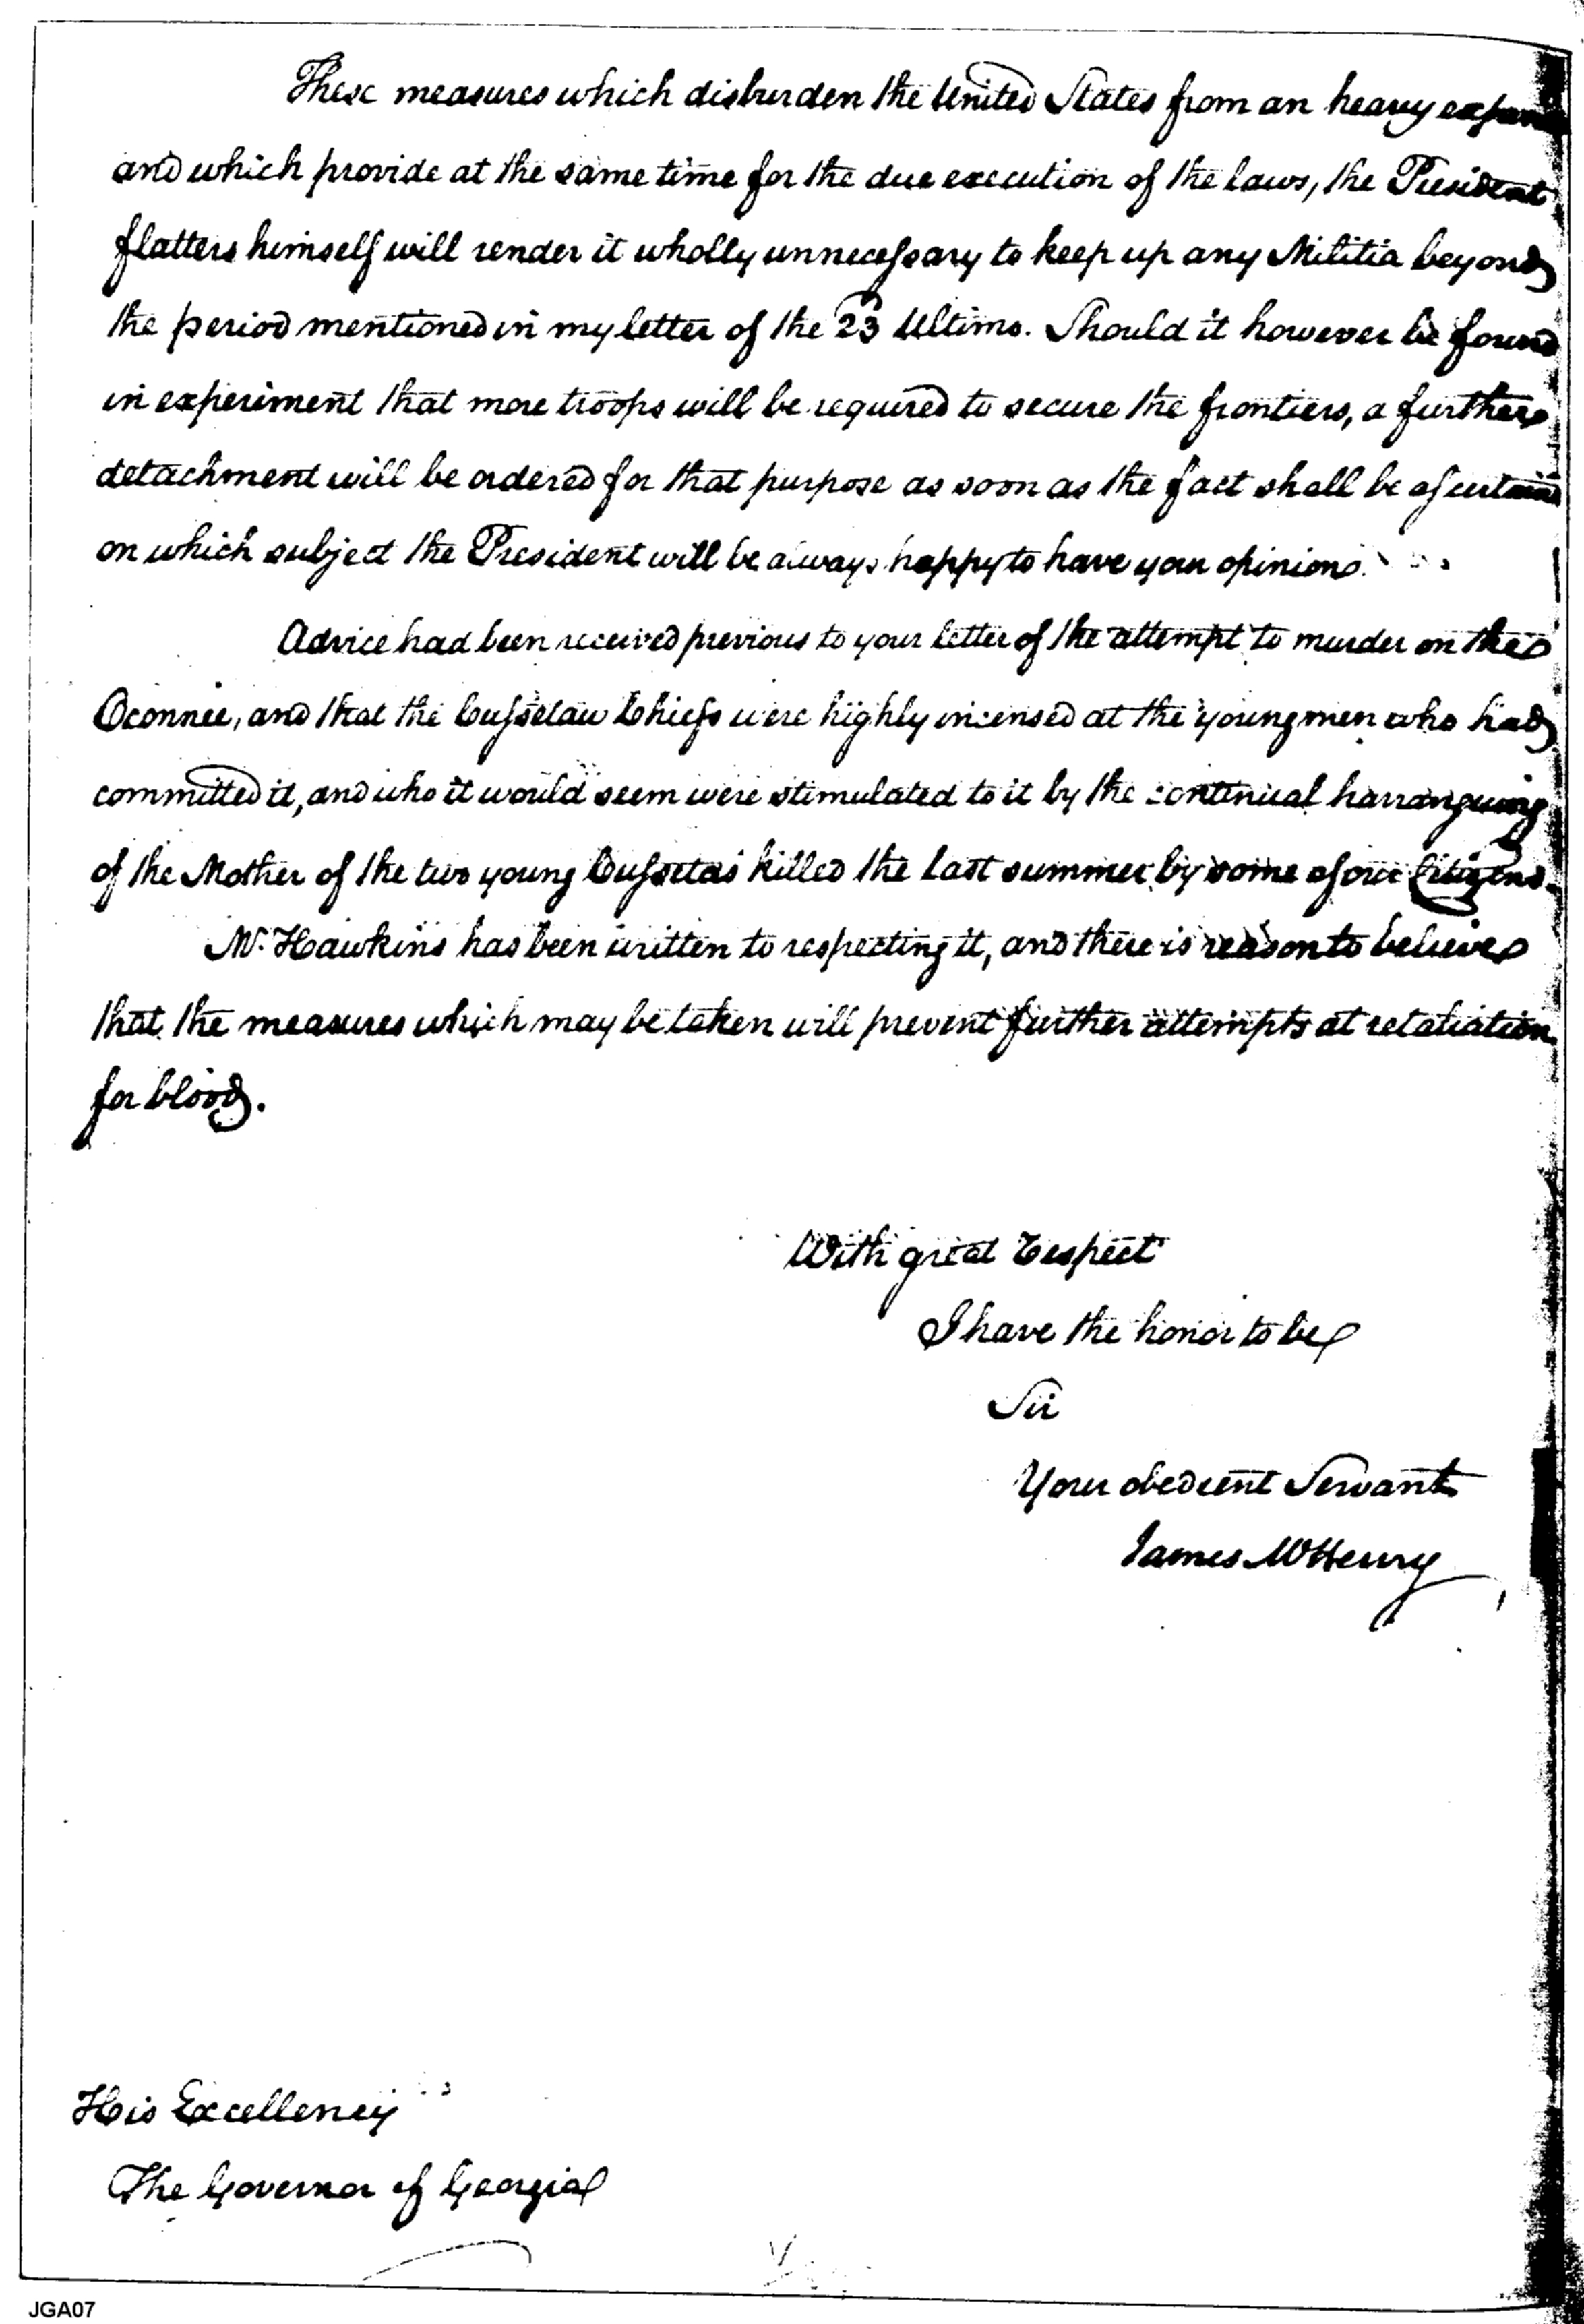 These measures which disburden the United States from an heavy
and which provide at the same time for the due execution of the laws, the President
flatters himself will render it wholly unnecessary to keep up any Militia beyond
the period mentioned in my letter of the 23 Ultimo. Should it however be found
in experiment that more troops will be required to secure the frontiers, a further
detachment will be ordered for that purpose as soon as the fact shall be
on which subject the President will be always happy to have your opinion.
Advice had been received previous to your letter of the attempt to murder on the
Oconnee, and that the Cussetaw Chiefs were highly incensed at the young men who had
committed it, and who it would seem were stimulated to it by the continual harranguing
of the Mother of the two young Cussetas killed the last summer by some of our Citizens.
Mr. Hawkins has been written to respecting it, and there is reason to believe
that the measures which may be taken will prevent further attempts at retaliation
for blood.
With great respect
I have the honor to be
Sir
Your obedient Servant
James McHenry
His Excellency
The Governor of Georgia
JGA07